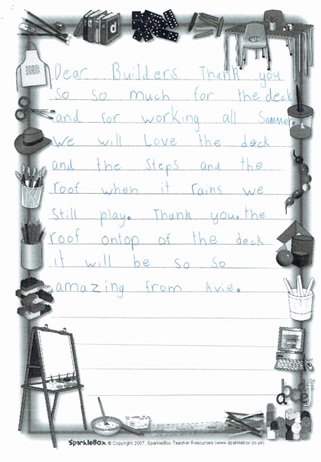 Dear Builders Thank you
so so much for the deck
and for working all Summer.
we will Love the deck
and the steps and the
roof when it rains we
still play. Thank you. the
roof ontop of the deck
it will be so so
amazing from Avie.
SparkleBox © Copyright 2007, SparkleBox Teacher Resources (www.sparklebox.co.uk)